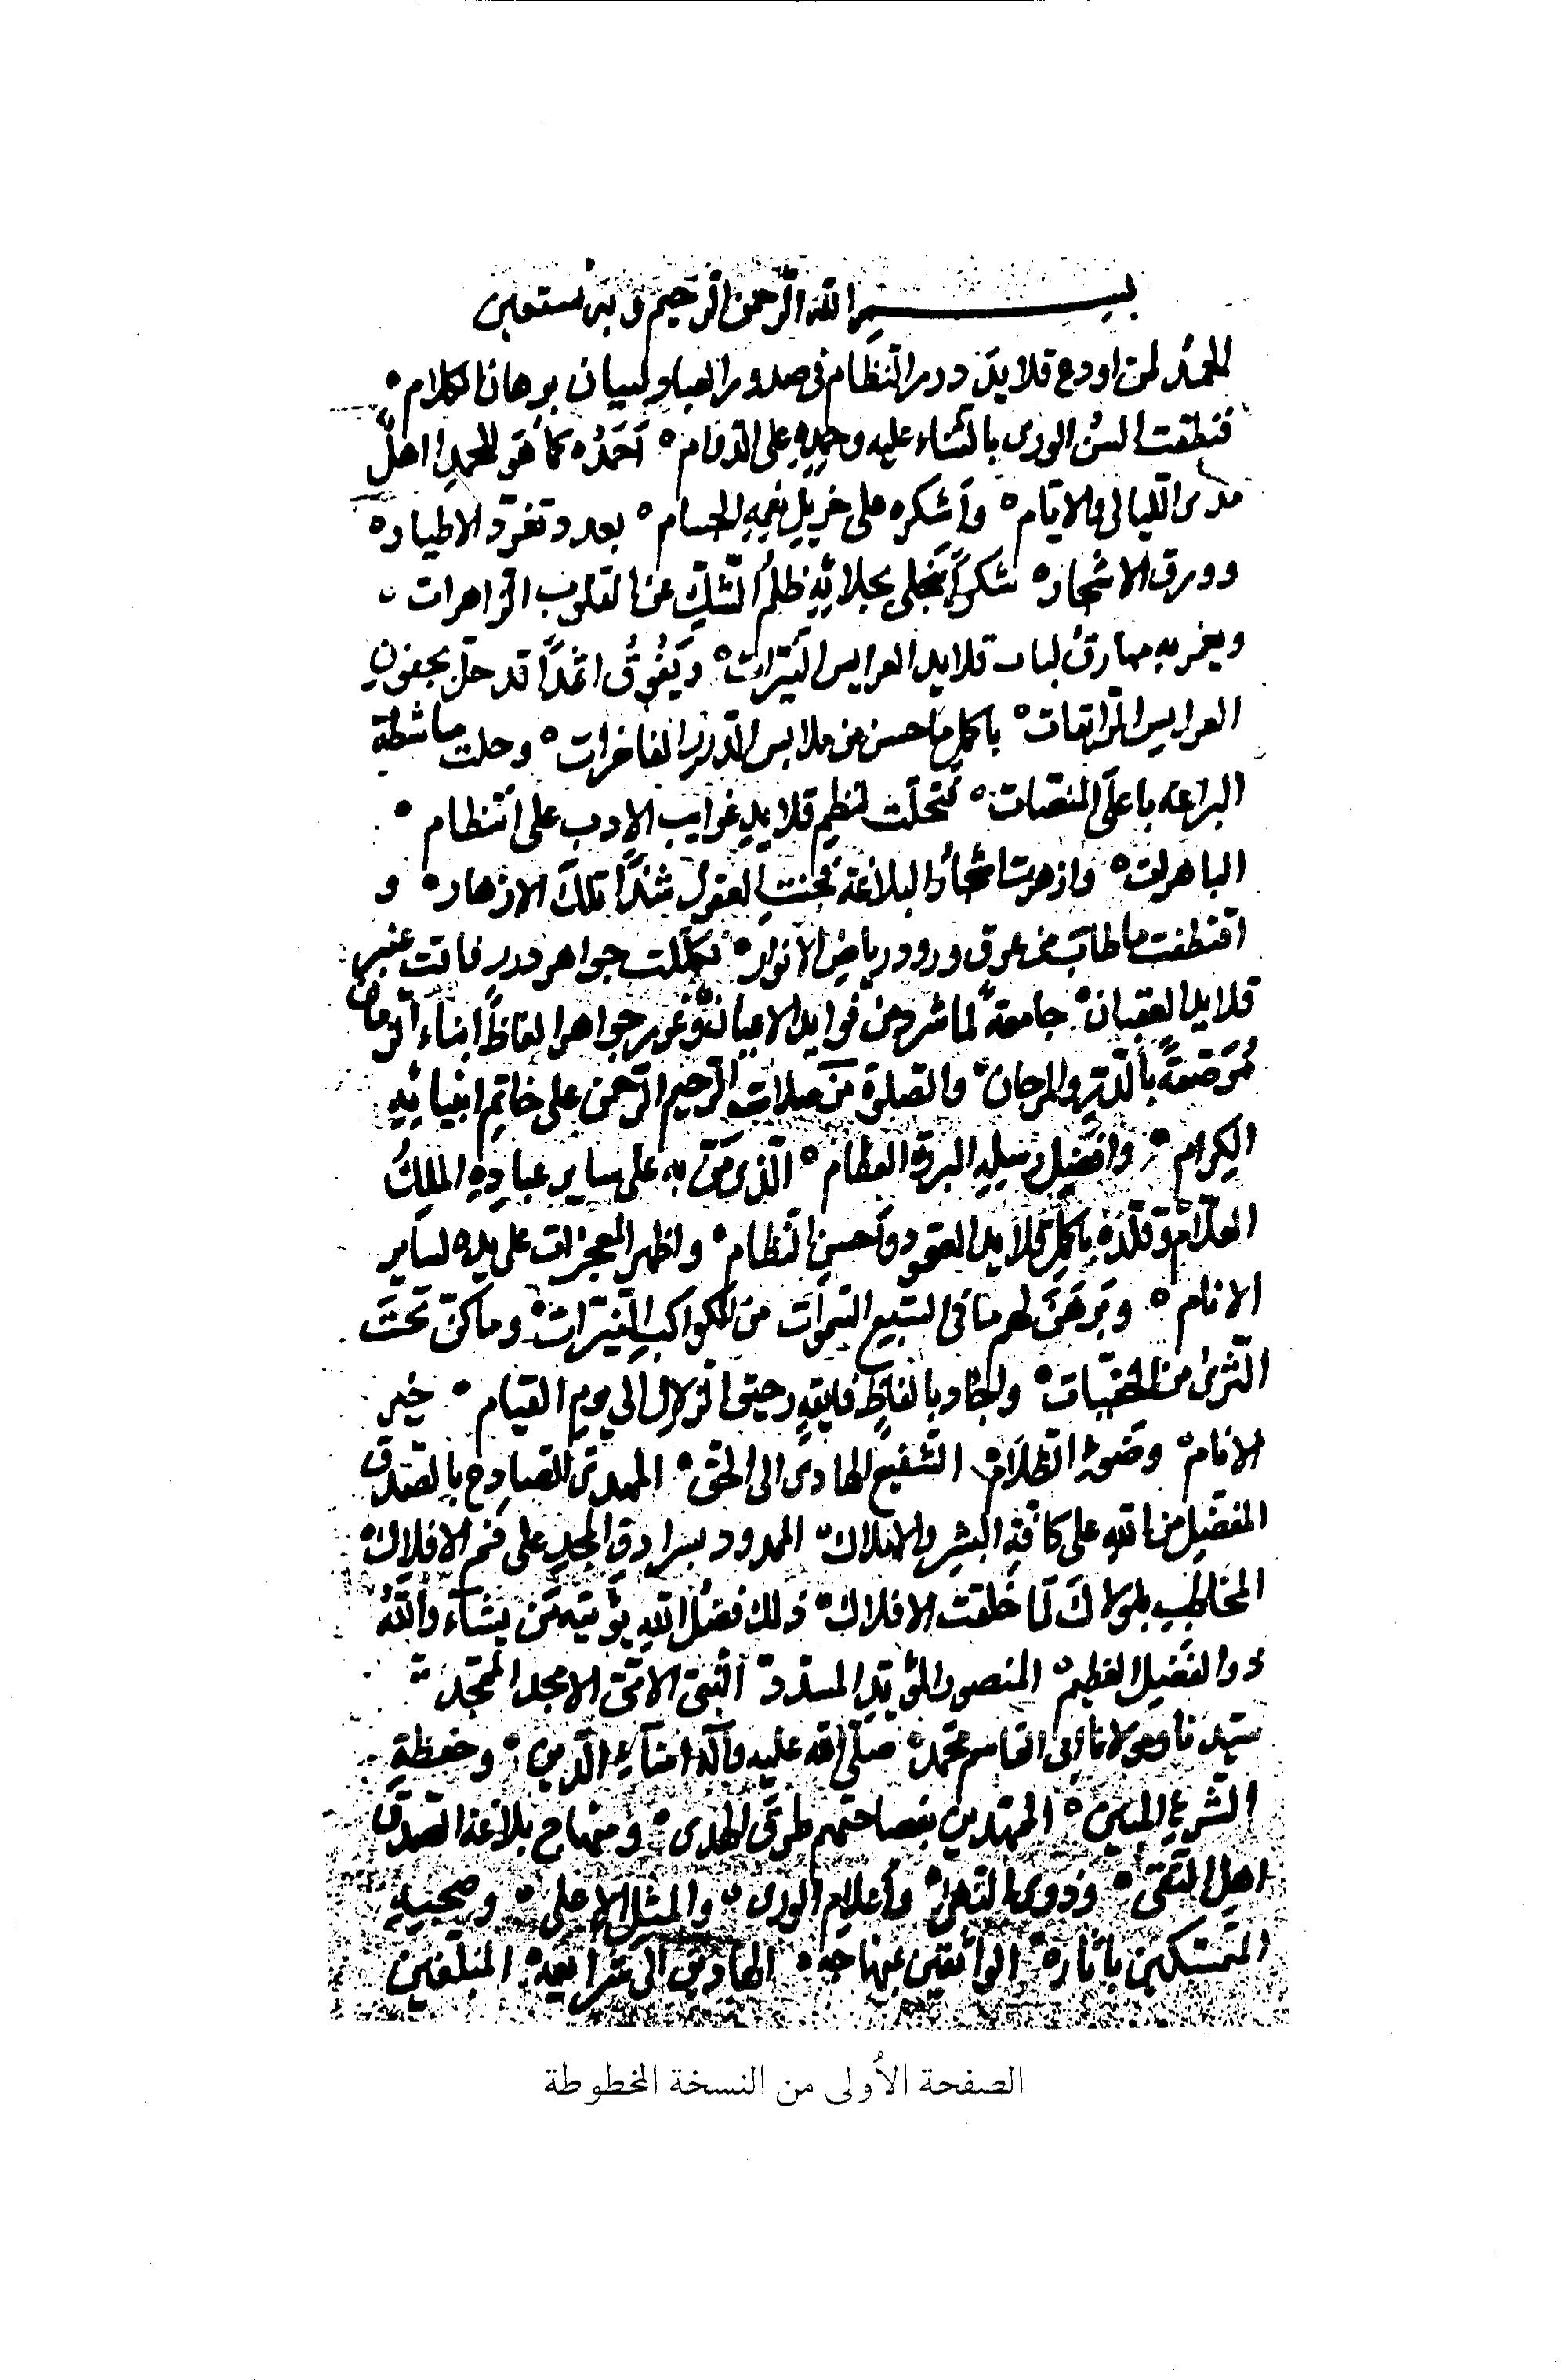 بسم الله الرحمن الرحيم وبه نستعين
الحمد لمن اودع قلايد درر النظام فى صدور العباد لبيان برهان الكلام
فنطقت السن الورى بالثناء عليه وحمده على الدوام احمده كما هو للحمد اهل
مدى الليالى والايام واشكره على جزيل نعمه الجسام بعدد تغرد الاطيار
وورق الاشجار شكرا ينجلى بجلائه ظلم الشك عن القلوب الزاهرات
قلايد العرايس النيرات ويفوق اثمدا قد حل بجفون
العرايس باكمل ما حسن من ملابس الدرر الفاخرات وحلت ماشطة
البراعة باعلى المنصات فتحلت لنظم قلايد غرايب الادب على انتظام
الباهرات وازهرت اشجار البلاغة فجنت العقول شذا تلك الازهار و
اقتطفت ما طاب من عرق ورود رياض الانوار فكللت جواهر درر فاقت
قلايد العقيان جامعة لما شرد من فوايد الاعيان وغرر جواهر الفاظ ابناء الزمان
مرصعة بالدر والمرجان والصلوة من صلات الرحيم الرحمن على خاتم انبيائه
الكرام وافضل رسله البررة العظام الذى من به على ساير عباده الملك
العلام وقلده باكمل قلايد العقود واحسن النظام واظهر المعجزات على يده لساير
الانام وبرهن لهم ما فى السبع السموات من الكواكب النيرات وما كن تحت
الثرى من الخفيات بالفاظ فايقة رحيق الزلال الى يوم القيام خير
الانام وضوء الظلام الشفيع الهادى الى الحق المهدى الصادع بالصدق
المفضل من الله على كافة البشر والاملاك الممدود سرادق المجد على قمم الافلاك
المخاطب بلولاك لما خلقت الافلاك ذلك فضل الله يؤتيه من يشاء والله
ذو الفضل العظيم المنصور المؤيد المسدد النبى الامى الامجد الممجد
سيدنا ومولانا ابى القاسم محمد صلى الله عليه وآله امناء الدين وحفظة
الشرع المبين الممهدين بفصاحتهم طرق الهدى ومنهاج بلاغة الصدق
اهل التقى وذوى النهى واعلام الورى والمثل الاعلى وصحبه
المتمسكين باثاره الواثقين بمنهاجه الهادين الى شرايعه المبلغين
الصفحة الأولى من النسخة المخطوطة